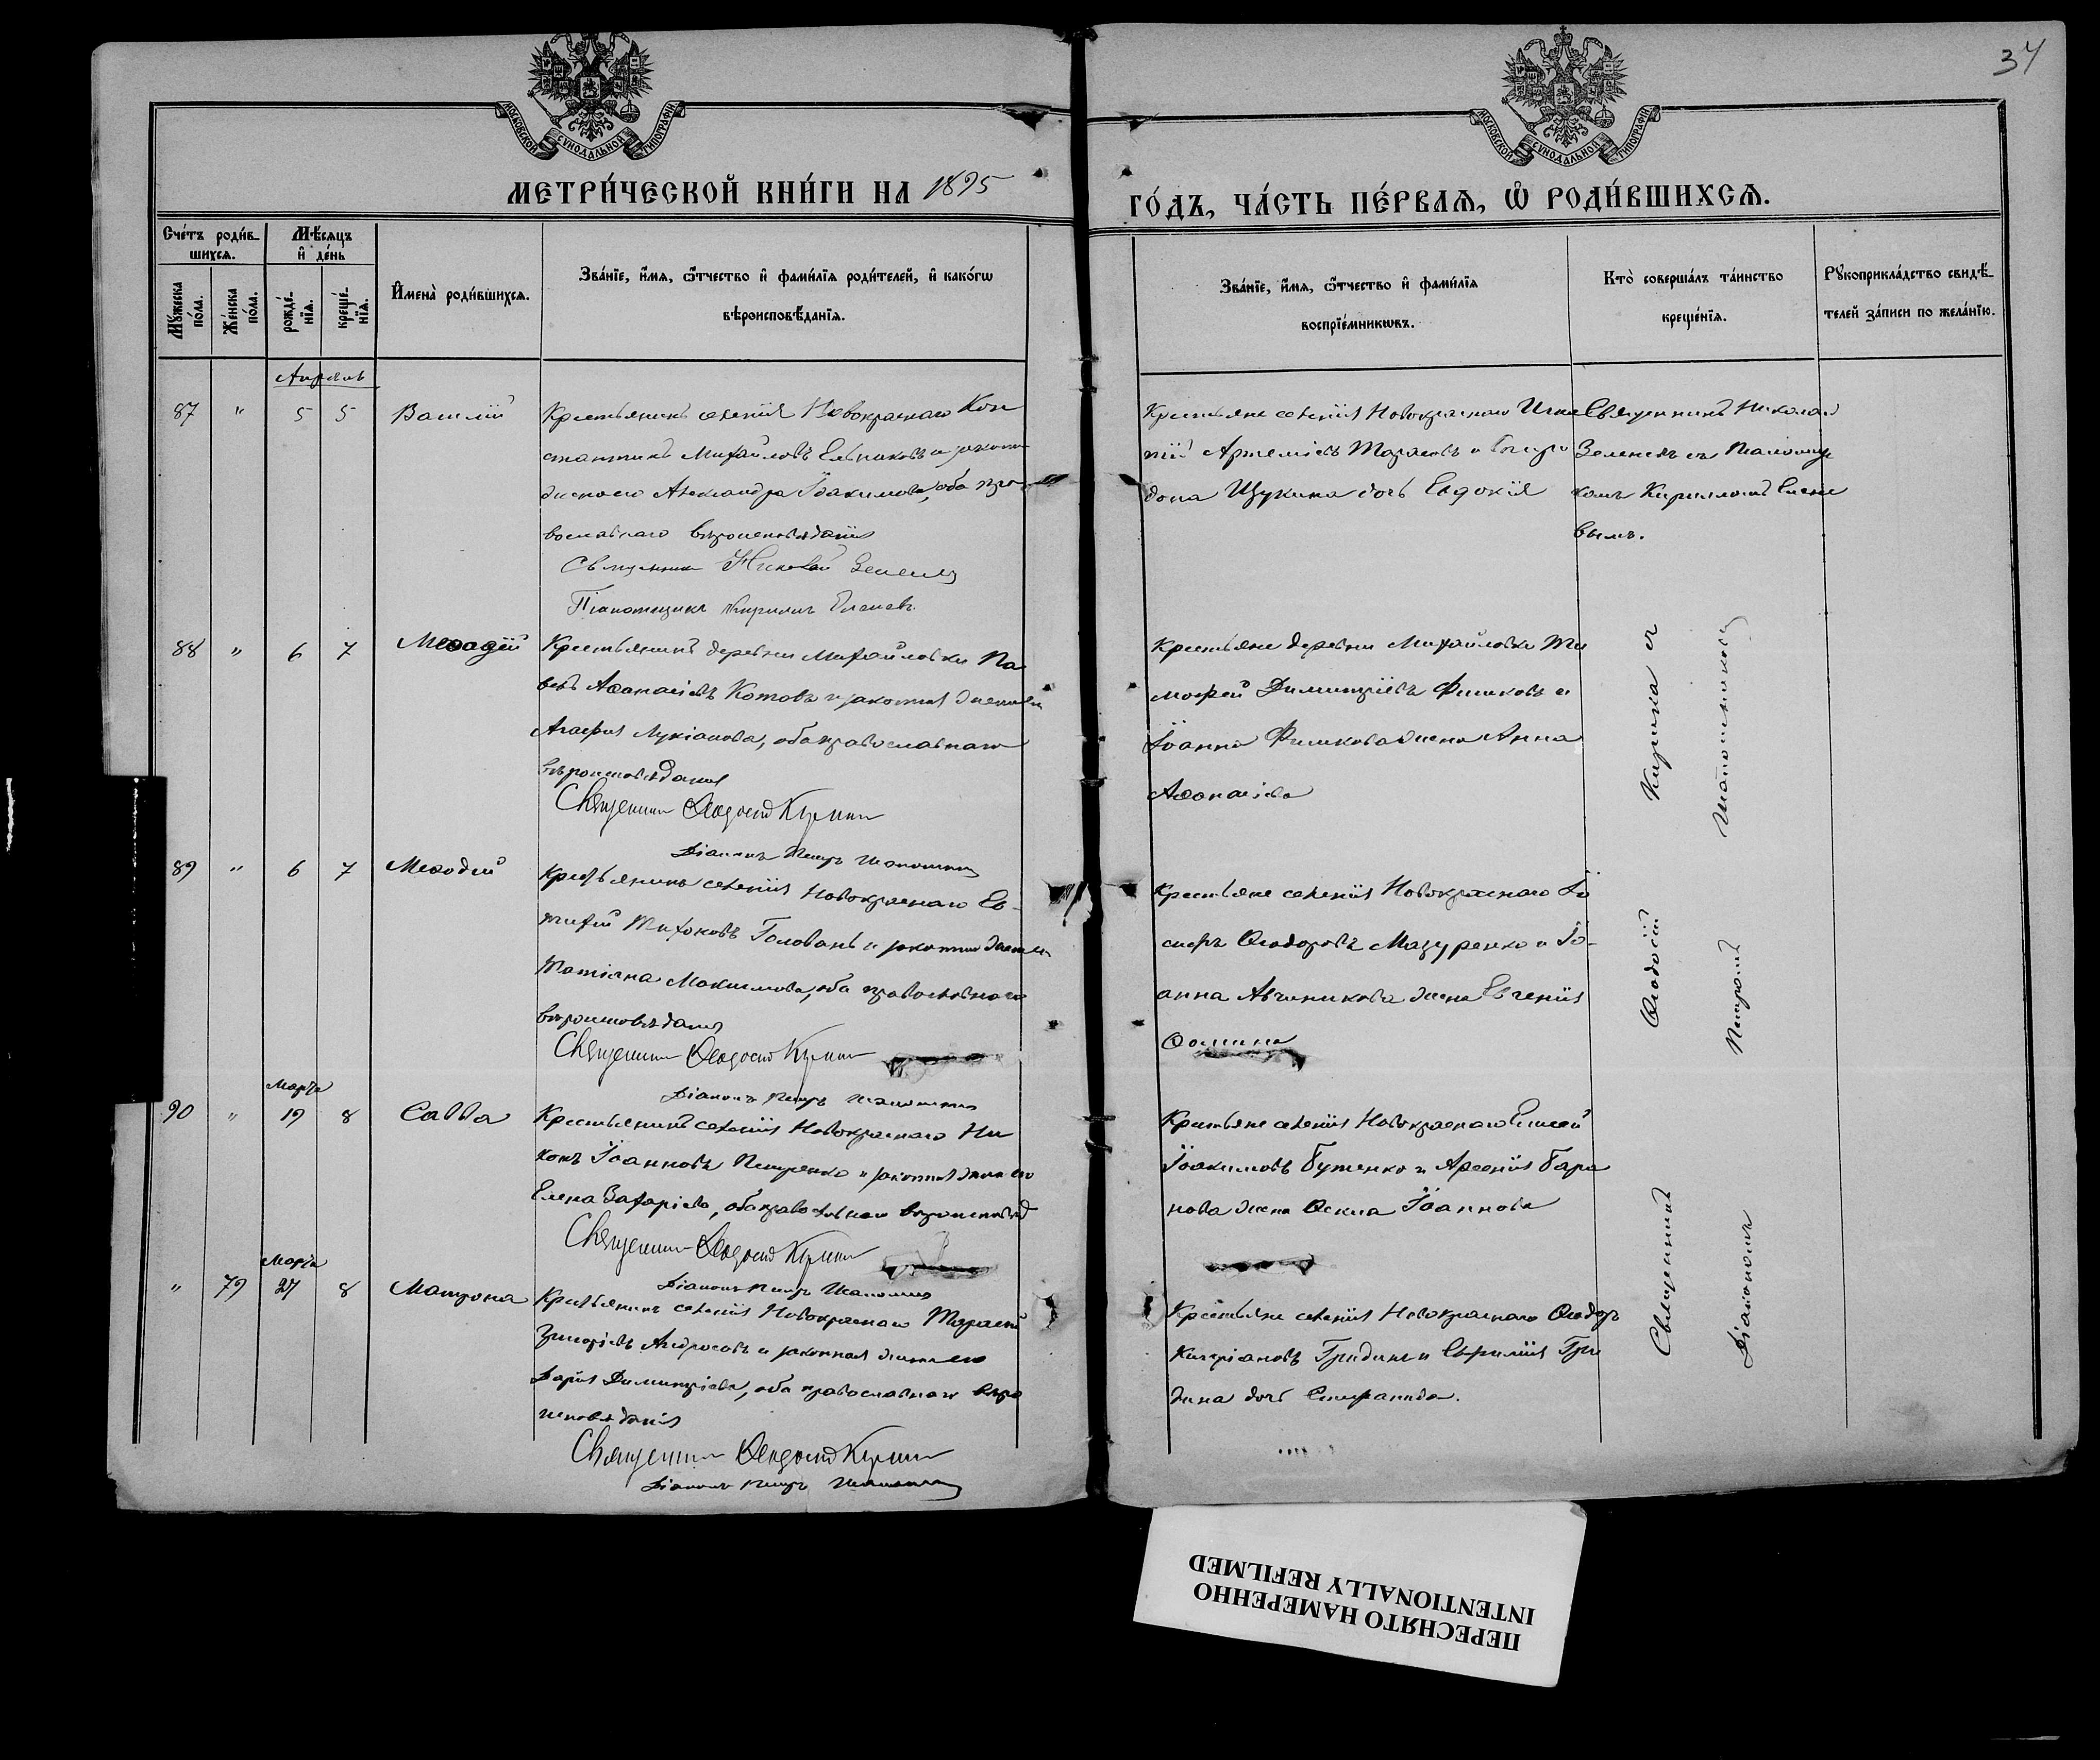 34
МОСКОВСКОЙ СѴНОДАЛЬНОЙ ТИПОГРАФІИ
МОСКОВСКОЙ СѴНОДАЛЬНОЙ ТИПОГРАФІИ
МЕТРИ́ЧЕСКОЙ КНИ́ГИ НА 1895
ГО́ДЪ, ЧА́СТЬ ПЕ́РВАѦ, Ѽ РОДИ́ВШИХСѦ.
Сче́тъ роди́в-
шихсѧ.
Мѣ́сѧцъ
и҆ де́нь
Мꙋ́жеска
по́ла.
Же́нска
по́ла.
рожде́-
нїѧ.
креще́-
нїѧ.
И҆мена̀ роди́вшихсѧ.
Зва́нїе, и҆́мѧ, ѻ҆́тчество и҆ фами́лїѧ роди́телей, и҆ како́гѡ
вѣроисповѣ́данїѧ.
Зва́нїе, и҆́мѧ, ѻ҆́тчество и҆ фами́лїѧ
воспрїе́мникѡвъ.
Кто̀ соверша́лъ та́инство
креще́нїѧ.
Рꙋкоприкла́дство свидѣ́-
телей за́писи по жела́нїю.
Апрѣль
87 " 5 5 Василій
Крестьянинъ селенія Новокраснаго Кон
стантинъ Михайловъ Ельниковъ и закон
жена его Александра Іоакимова, оба пра
вославнаго вѣроисповѣданія
Священникъ Николай Зеленскій
Псаломщикъ Кириллъ
Крестьяне селенія Новокраснаго Игна
тій Артеміевъ Тарасовъ и Спири
дона Щукина дочь Евдокія
Священникъ Николай
Зеленскій съ Псаломщи
комъ Кирилломъ
вымъ.
88 " 6 7 Меѳодій
Крестьянинъ деревни Михайловки Па
велъ Аѳанасіевъ Котовъ и законная жена его
Агафія Лукіанова, оба православнаго
вѣроисповѣданія
Священникъ Ѳеодосій
Діаконъ Петръ
Крестьяне деревни Михайловки Ти
моѳей Димитріевъ Фишковъ и
Іоанна Фишкова жена Анна
Аѳанасіева
89 " 6 7 Меѳодій
Крестьянинъ селенія Новокраснаго Ев-
тихій Тихоновъ Головань и законная жена его
Татіана Максимова, оба православнаго
вѣроисповѣданія
Священникъ Ѳеодосій
Діаконъ Петръ
Крестьяне селенія Новокраснаго Іо
сифъ Ѳеодоровъ Мазуренко и Іо-
анна Авчиникова жена Евгенія
Ѳомина
Марта
90 " 19 8 Савва
Крестьянинъ селенія Новокраснаго Ни
конъ Іоанновъ Петренко и законная жена его
Елена Захаріева, оба православнаго вѣроисповѣд
Священникъ Ѳеодосій
Діаконъ Петръ
Крестьяне селенія Новокраснаго Елисей
Іоакимовъ Бутенко и Арсенія Бара
нова жена Іоаннова
Марта
" 79 27 8 Матрона
Крестьянинъ селенія Новокраснаго Тарасій
Григоріевъ Андросовъ и законная жена его
Дарія Димитріева, оба православнаго вѣро
исповѣданія
Священникъ Ѳеодосій
Діаконъ Петръ
Крестьяне селенія Новокраснаго Ѳеодоръ
Кипріановъ Гридинъ и Гри
дина дочь Стефанида.
Священникъ Ѳеодосій
съ
Діакономъ Петромъ
ПЕРЕСНЯТО НАМЕРЕННО
INTENTIONALLY REFILMED